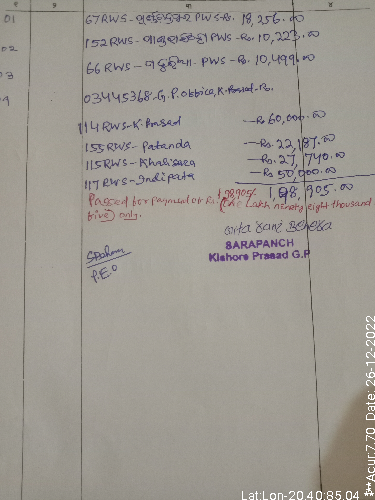 01 67 RWS- PWS-Rs. 18,256.00
02 152 RWS- PWS-Rs. 10,223.00
3 66 RWS- PWS-Rs. 10,499.00
4 03445368-G.P. office, K. Prasad-Rs.
114 RWS-K. Prasad - Rs 60,000.00
155 RWS- Patanda - Rs. 22,187.00
115 RWS- Khalisara - Rs. 27,740.00
117 RWS-Indipata - Rs 50,000.00
1,98,905.00
Passed for payment of Rs. 198905/- (one Lakh ninety eight thousand
five) only.
SARAPANCH
Kishore Prasad G.P
P.E.O
Lat:Lon-20.40:85.04
**Acur:7.70 Date: 26-12-2022